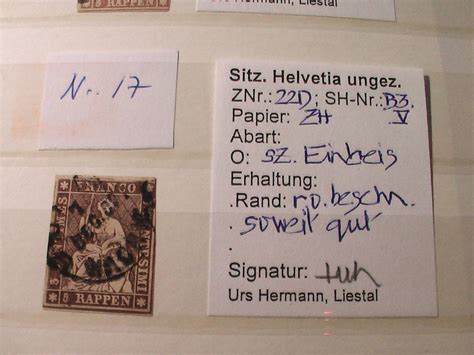 5 RAPPEN
Urs Hermann, Liestal
Nr. 17
Sitz. Helvetia ungez.
ZNr.: 22D; SH-Nr.: B3.
Papier: ZH V
Abart:
O: sz. Einkreis
Erhaltung:
.Rand: r.o. beschn.
. soweit gut
.
Signatur:
Urs Hermann, Liestal
FRANCO
5 RAPPEN 5